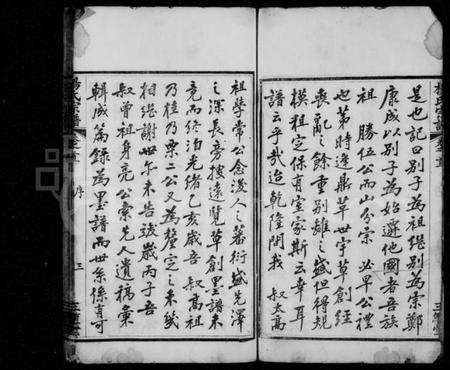 是也記曰別子為祖繼別為宗鄭
康成以別子為始遷他國者吾族
祖 勝伍公而山分宗 必草公禮
也第時逢鼎革世宇草創經
喪亂之餘重別雖之盛但得規
模粗定保有室家斯云幸耳
譜云乎哉迨乾隆間我 叔太高
祖學常公念后人之蕃衍盛先澤
之深長旁搜遠覽草創墨譜未
竟而終洎光緒乙亥歲吾 叔高祖
乃桂乃栗二公又為釐定之未幾
相繼謝世尔未告竣歲丙子吾
叔曾祖身亮公索先人遺稿彙
輯成篇錄為墨譜而世系係有可
楊氏宗譜
卷之首
序
三